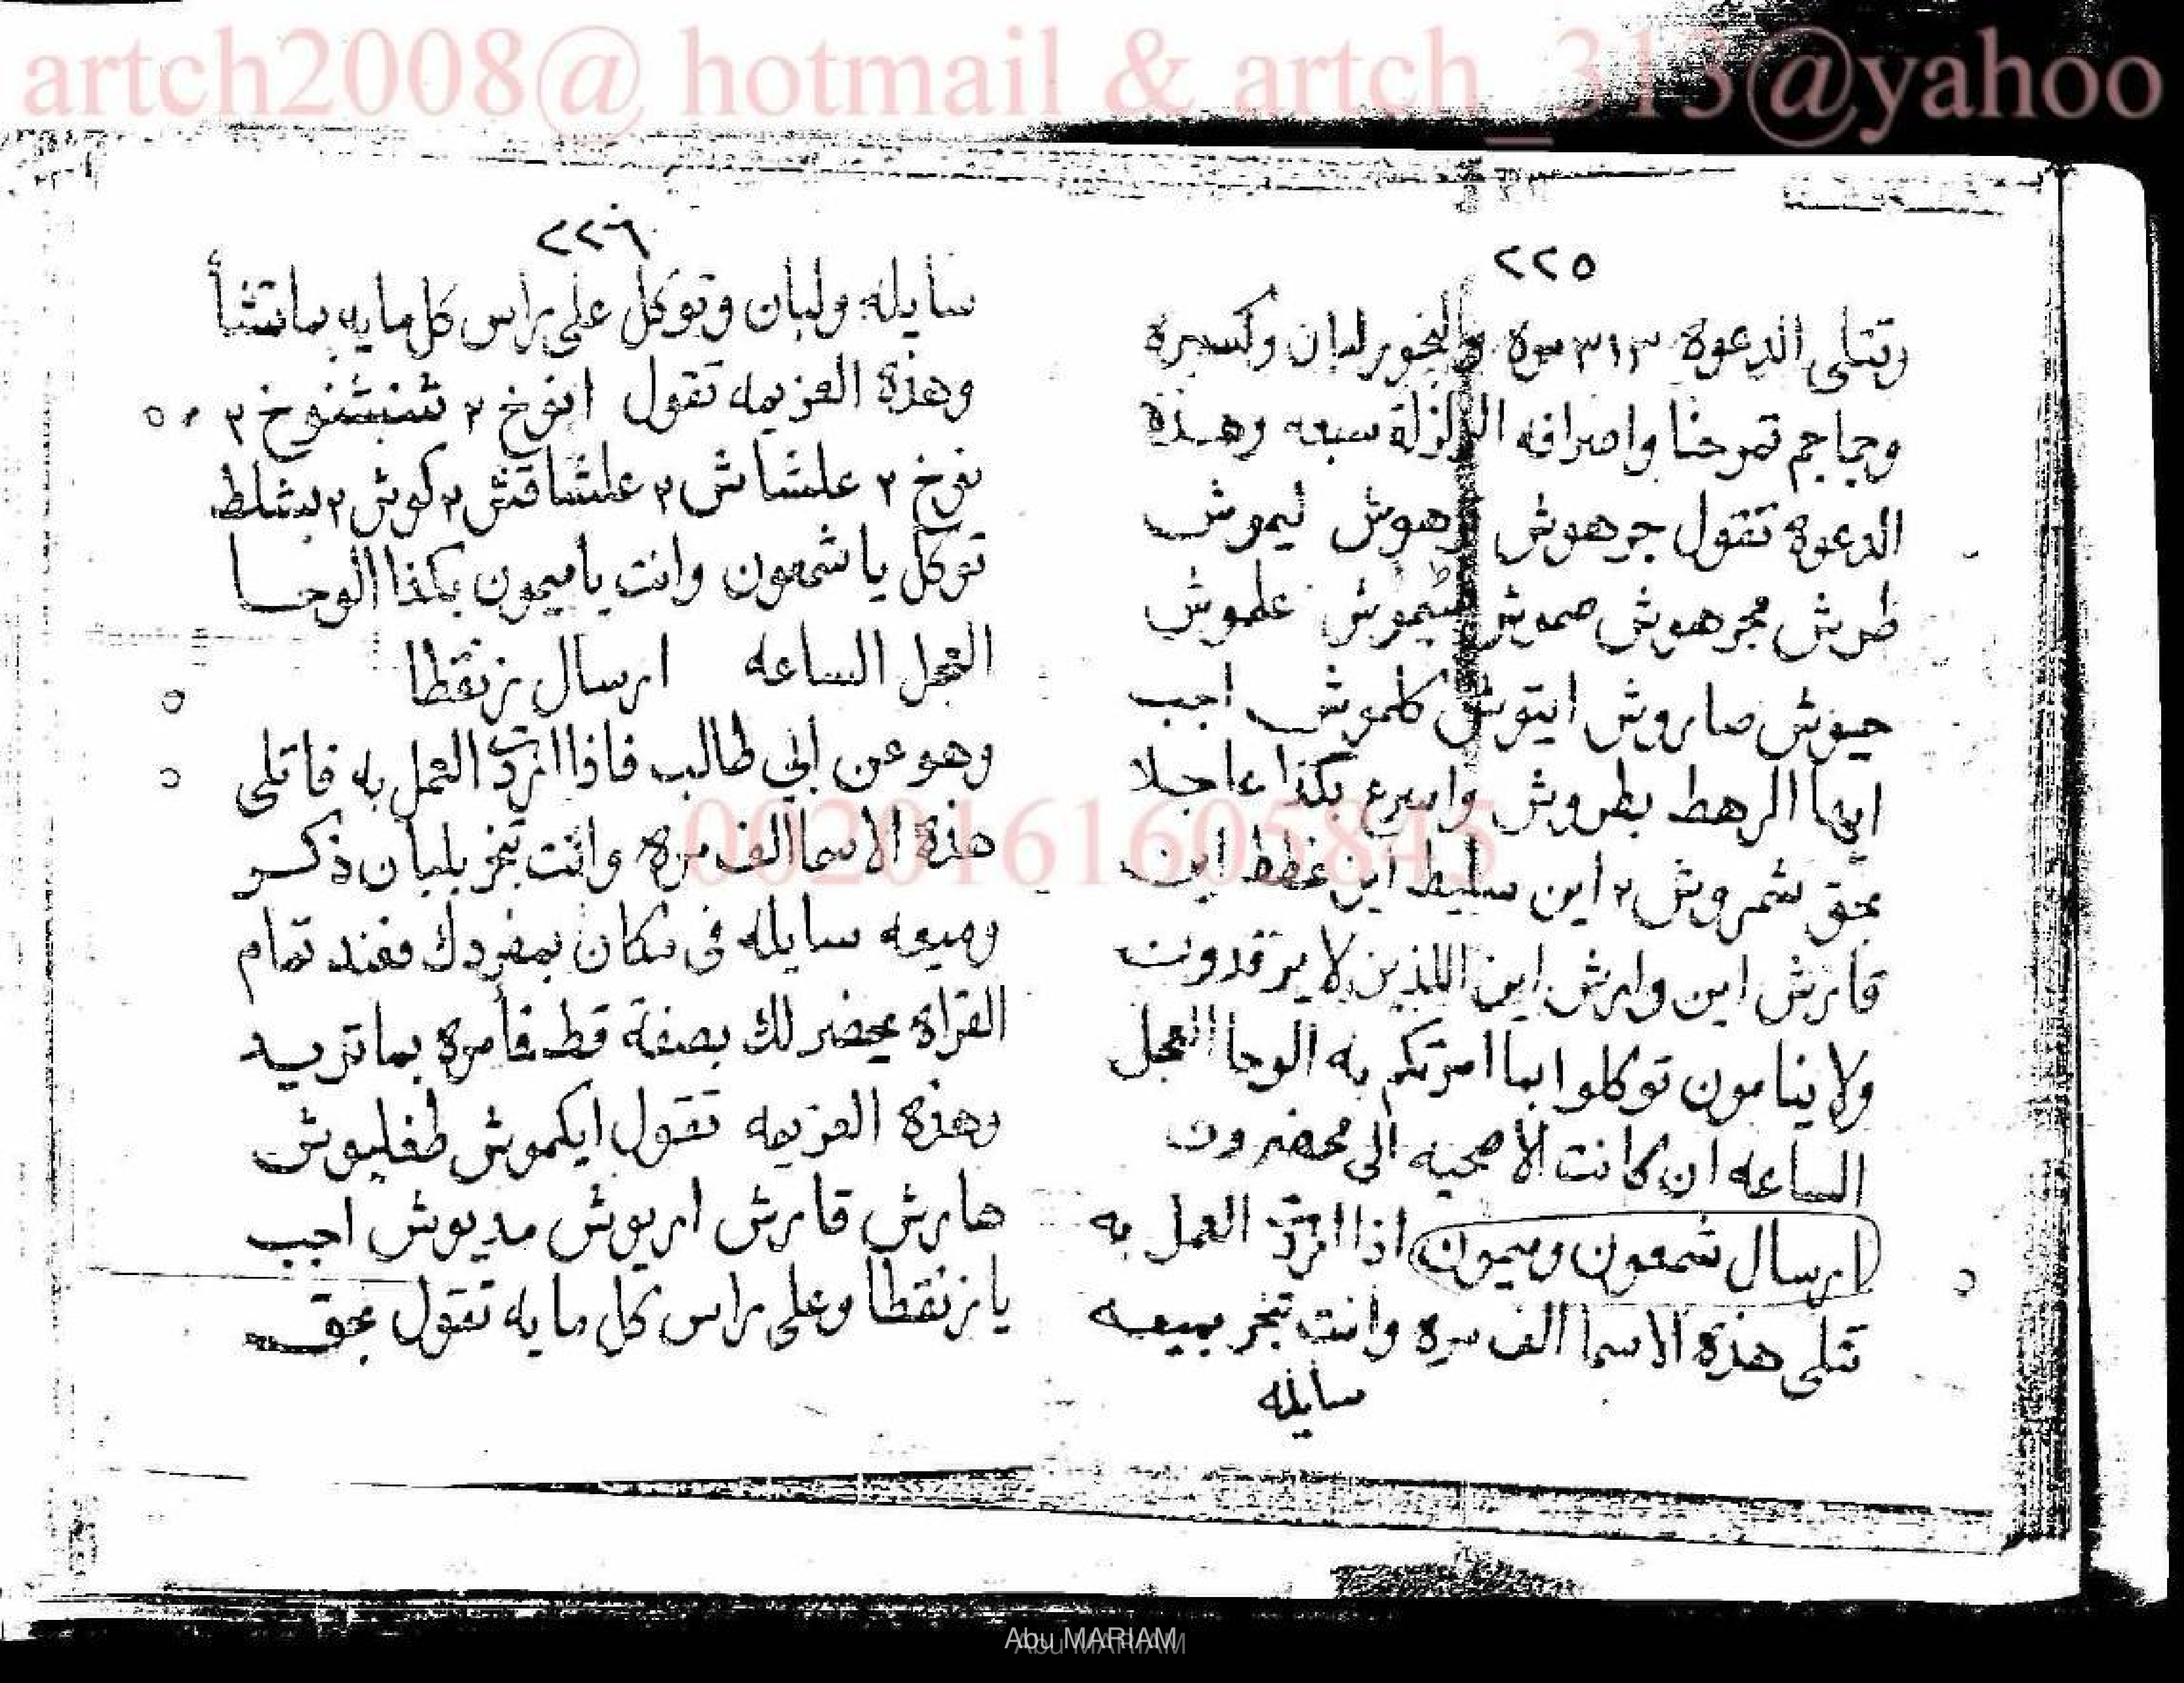 artch2008@ hotmail & artch_313@yahoo
٢٢٥
وتتلى الدعوة ٣١٣ مرة والبخور لبان وكسبره
وجماجم تمرحنا واصرافه الزلزلة سبعه وهذة
الدعوة تقول جرهوش رهوش ليموش
طرش مجرهوش صموش علموش
حيوش صاروش ايتوش كلموش اجب
ايها الرهط بطروش واسرع بكذا عاجلا
بحق شمروش ٢ اين سليط اين غطط اين
قارش اين وارش اين اللذين لا يرقدون
ولا ينامون توكلوا بما امرتكم به الوحا العجل
الساعه ان كانت الا صحيه الى محضرون
ارسال شمعون وميمون اذا اردت العمل به
تتلى هذة الاسما الف مره وانت تبخر بميعه
سايله
٢٢٦
سايله ولبان وتوكل على راس كل مايه بما تشأ
وهذة العزيمه تقول انوخ ٢ شنبشنوخ ٢
نوخ ٢ علشاش ٢ علشاقش ٢ كوش ٢ بشلط
توكل يا شمعون وانت يا ميمون بكذا الوحا
العجل الساعه ارسال زنقطا
وهو عن ابي طالب فاذا اردت العمل به فاتلى
هذة الاسما الف مره وانت تبخر بلبان ذكر
وميعه سايله فى مكان بمفردك فعند تمام
القراة يحضر لك بصفة قط فأمرة بما تريد
وهذة العزيمه تقول ايكموش طغليوش
هارش قارش اريوش مديوش اجب
يا زنقطا وعلى راس كل مايه تقول بحق
00201616058 45
Abu MARIAM